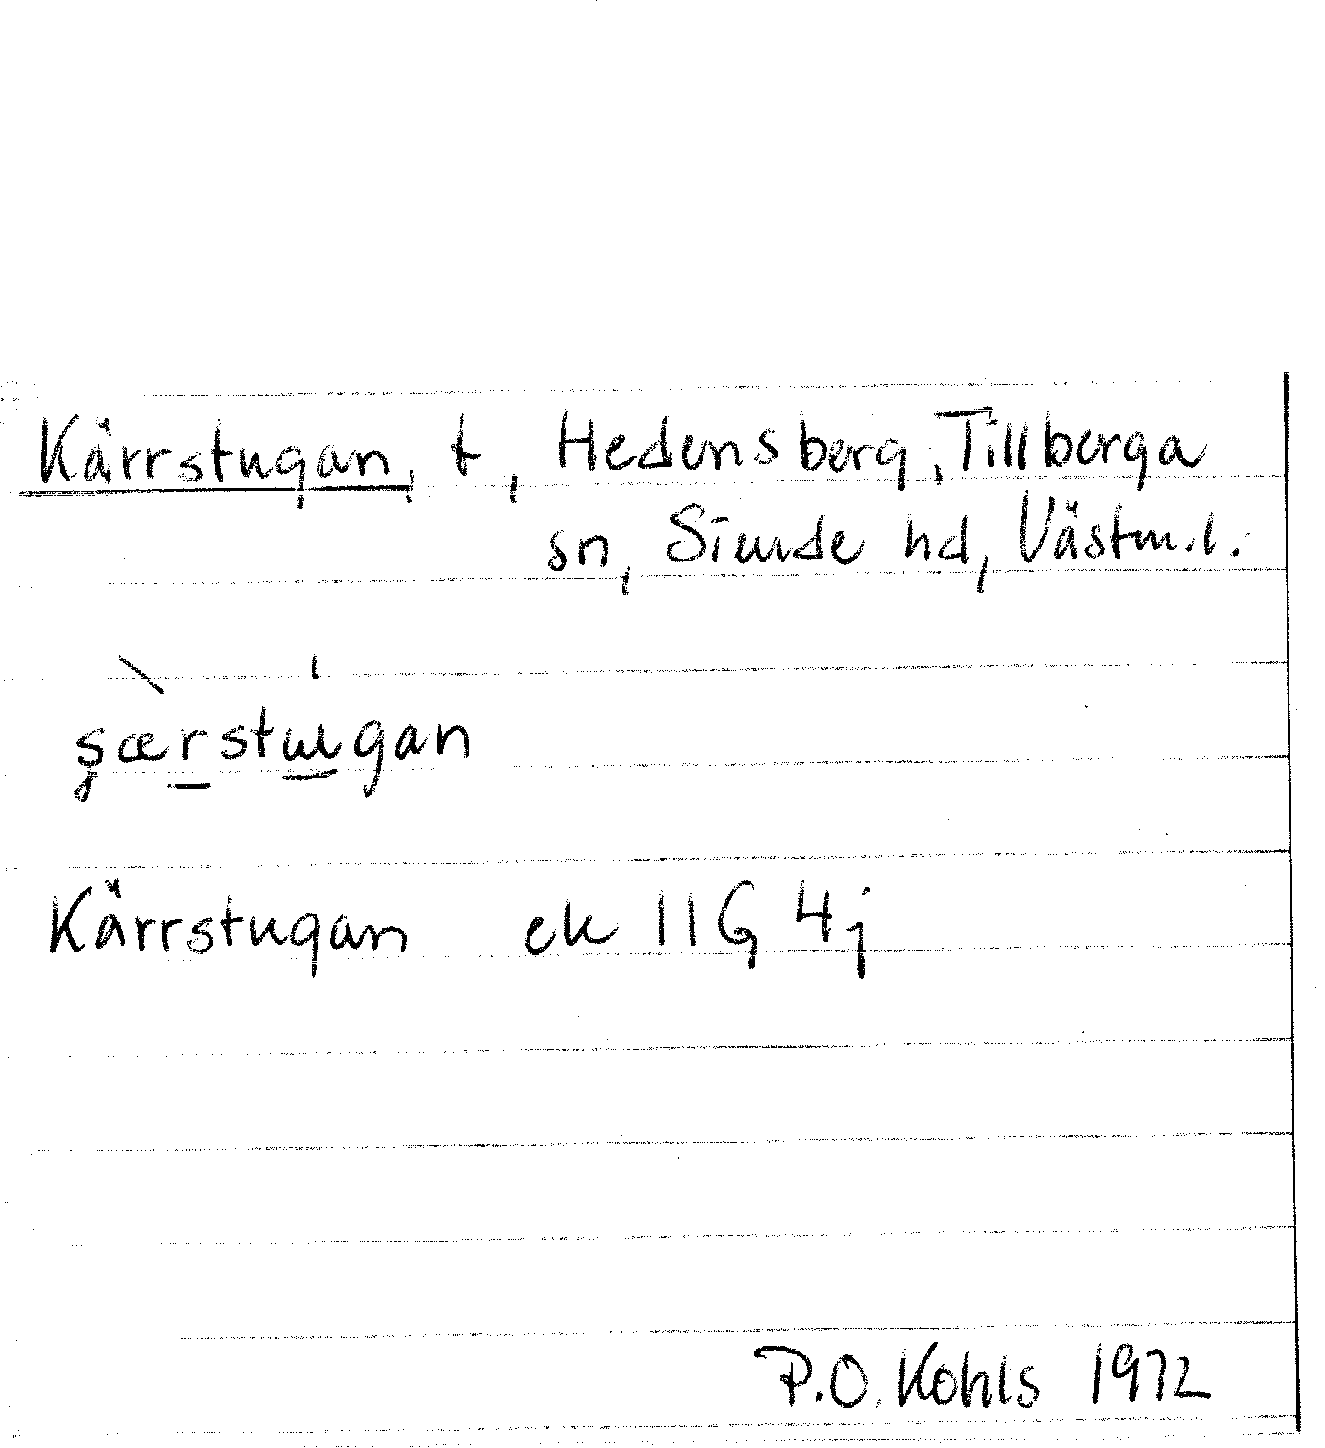 Kärrstugan, t, Hedensberg, Tillberga
sn, Siende hd, Västm.l.
şærstɯgan
Kärrstugan ek 11G 4j
P.O. Kohls 1972